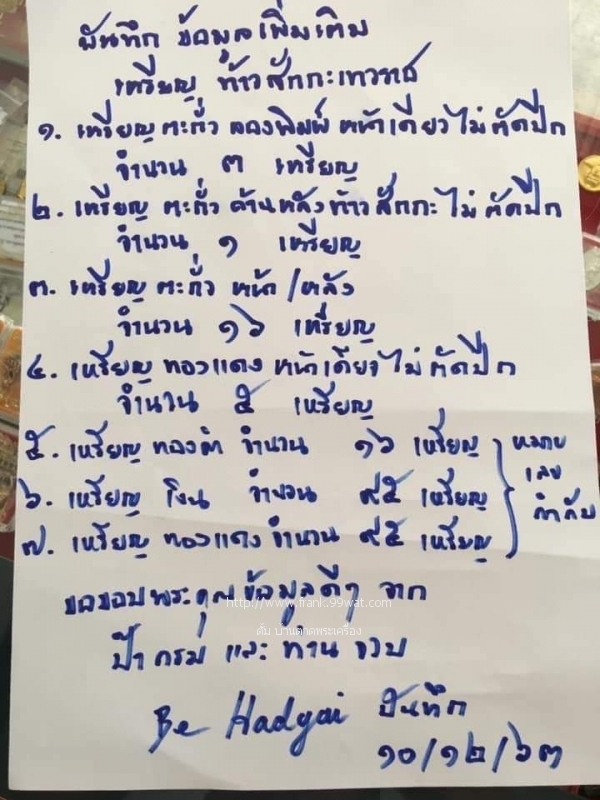 บันทึก ข้อมูลเพิ่มเติม
เหรียญ ท้าวสักกะเทวราช
๑. เหรียญตะกั่ว ลองพิมพ์ หน้าเดียวไม่ตัดปีก
จำนวน ๓ เหรียญ
๒. เหรียญ ตะกั่ว ด้านหลังท้าวสักกะไม่ตัดปีก
จำนวน ๑ เหรียญ
๓. เหรียญตะกั่ว หน้า/หลัง
จำนวน ๑๖ เหรียญ
๔. เหรียญ ทองแดง หน้าเดียวไม่ตัดปีก
จำนวน ๕ เหรียญ
๕. เหรียญ ทองคำ จำนวน ๑๖ เหรียญ
๖. เหรียญ เงิน จำนวน ๙๕ เหรียญ
๗. เหรียญ ทองแดง จำนวน ๙๕ เหรียญ
หมาย
เลข
กำกับ
ขอขอบพระคุณข้อมูลดีๆ จาก
http://www.frank.99wat.com
ตั้ม บ้านตาดพระเครื่อง
ป๋า กรม และ ท่าน
Be Hadyai บันทึก
๑๐/๑๒/๖๓